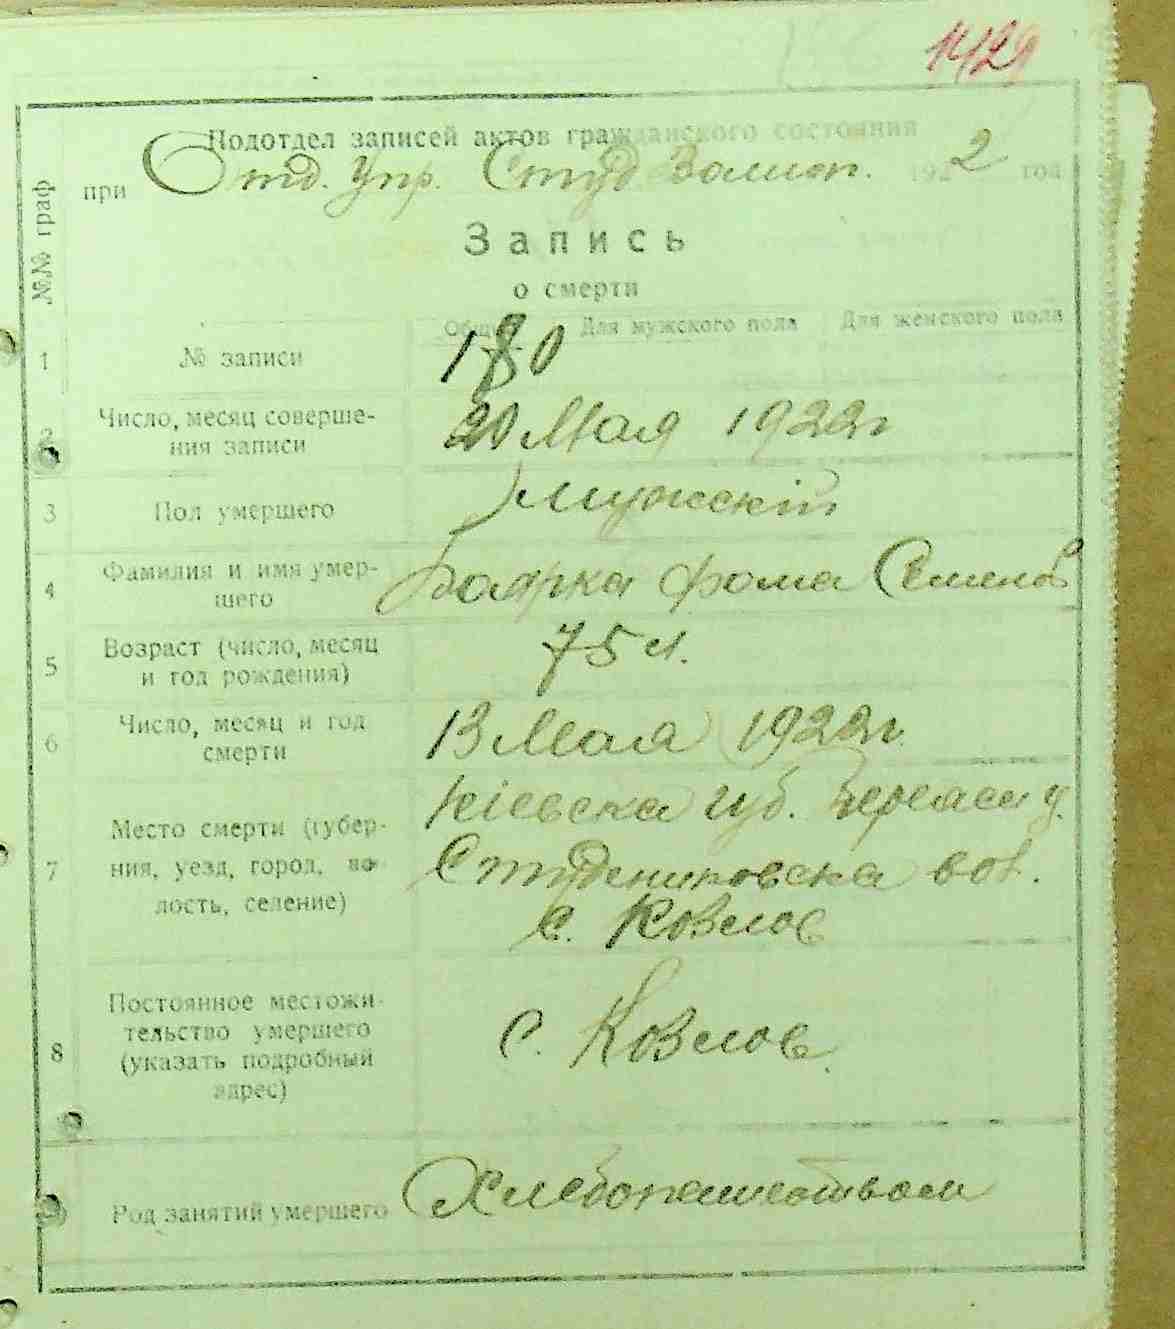 1429
Подотдел записей актов гражданского состояния
при Отд. Упр. Студ Волисп. 1922 год
№№ граф
Запись
о смерти
Общие Для мужского пола Для женского пола
1 № записи 180
2 Число, месяц соверше-
ния записи
20 Мая 1922г
3 Пол умершего Мужскій
4 Фамилия и имя умер-
шего
Боярка Фома Семенов
5 Возраст (число, месяц
и год рождения)
75 л.
6 Число, месяц и год
смерти
13 Мая 1922г.
7 Место смерти (губер-
ния, уезд, город, во-
лость, селение)
Кіевска губ. у.
Студениковска вол.
с. Козлов
8 Постоянное местожи-
тельство умершего
(указать подробный
адрес)
с. Козлов
Род занятий умершего Хлебопашеством